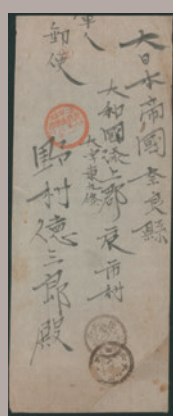 大日本帝國奈良縣
大和國添上郡辰市村
大字東九條
野村德三郎殿
軍人
郵便